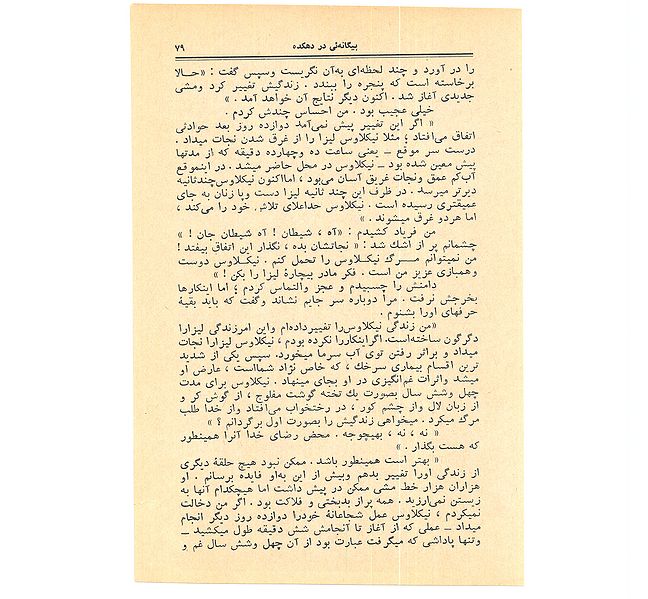 بیگانه‌ئی در دهکده ۷۹
را در آورد و چند لحظه‌ای به‌آن نگریست وسپس گفت : «حـالا
برخاسته است که پنجره را ببندد . زندگیش تغییر کرد ومشی
جدیدی آغاز شد . اکنون دیگر نتایج آن خواهد آمد . »
خیلی عجیب بود . من احساس چندش کردم .
« اگر این تغییر پیش نمی‌آمد دوازده روز بعد حوادثی
اتفاق می‌افتاد ، مثلا نیکلاوس لیزا را از غرق شدن نجات میداد .
درست سر موقع ــ یعنی ساعت ده وچهارده دقیقه که از مدتها
پیش معین شده بود ــ نیکلاوس در محل حاضر میشد . در اینموقع
آب‌کم عمق ونجات غریق آسان می‌بود ، امااکنون نیکلاوس‌چندثانیه
دیرتر میرسد . در ظرف این چند ثانیه لیزا دست وپا زنان به جای
عمیقتری رسیده است . نیکلاوس حداعلای تلاش خود را می‌کند ،
اما هردو غرق میشوند . »
من فریاد کشیدم : «آه ، شیطان ! آه شیطان جان ! »
چشمانم پر از اشك شد : « نجاتشان بده ، نگذار این اتفاق بیفتد !
من نمیتوانم مــرگ نیکــلاوس را تحمل کنم . نیکــلاوس دوست
وهمبازی عزیز من است . فکر مادر بیچارهٔ لیزا را بکن ! »
دامنش را چسبیدم و عجز والتماس کردم ؛ اما اینکارها
بخرجش نرفت . مرا دوباره سر جایم نشاند وگفت که باید بقیهٔ
حرفهای اورا بشنوم .
«من زندگی نیکلاوس‌را تغییرداده‌ام واین امرزندگی لیزارا
دگرگون ساخته‌است. اگراینکاررا نکرده بودم ، نیکلاوس لیزارا نجات
میداد و براثر رفتن توی آب سرما میخورد. سپس یکی از شدید
ترین اقسام بیماری سرخك ، که خاص نژاد شمااست ، عارض او
میشد واثرات غم‌انگیزی در او بجای مینهاد . نیکلاوس برای مدت
چهل وشش سال بصورت یك تخته گوشت مفلوج ، از گوش کر و
از زبان لال واز چشم کور ، در رختخواب می‌افتاد واز خدا طلب
مرگ میکرد . میخواهی زندگیش را بصورت اول برگردانم ؟ »
« نه ، نه ، بهیچوجه . محض رضای خدا آنرا همینطور
که هست بگذار . »
« بهتر است همینطور باشد . ممکن نبود هیچ حلقهٔ دیگری
از زندگی اورا تغییر بدهم وبیش از این به‌او فایده برسانم . او
هزاران هزار خط مشی ممکن در پیش داشت اما هیچکدام آنها به
زیستن نمی‌ارزید . همه پراز بدبختی و فلاکت بود . اگر من دخالت
نمیکردم ، نیکلاوس عمل شجاعانهٔ خودرا دوازده روز دیگر انجام
میداد ــ عملی که از آغاز تا آنجامش شش دقیقه طول میکشید ــ
وتنها پاداشی که میگرفت عبارت بود از آن چهل وشش سال غم و